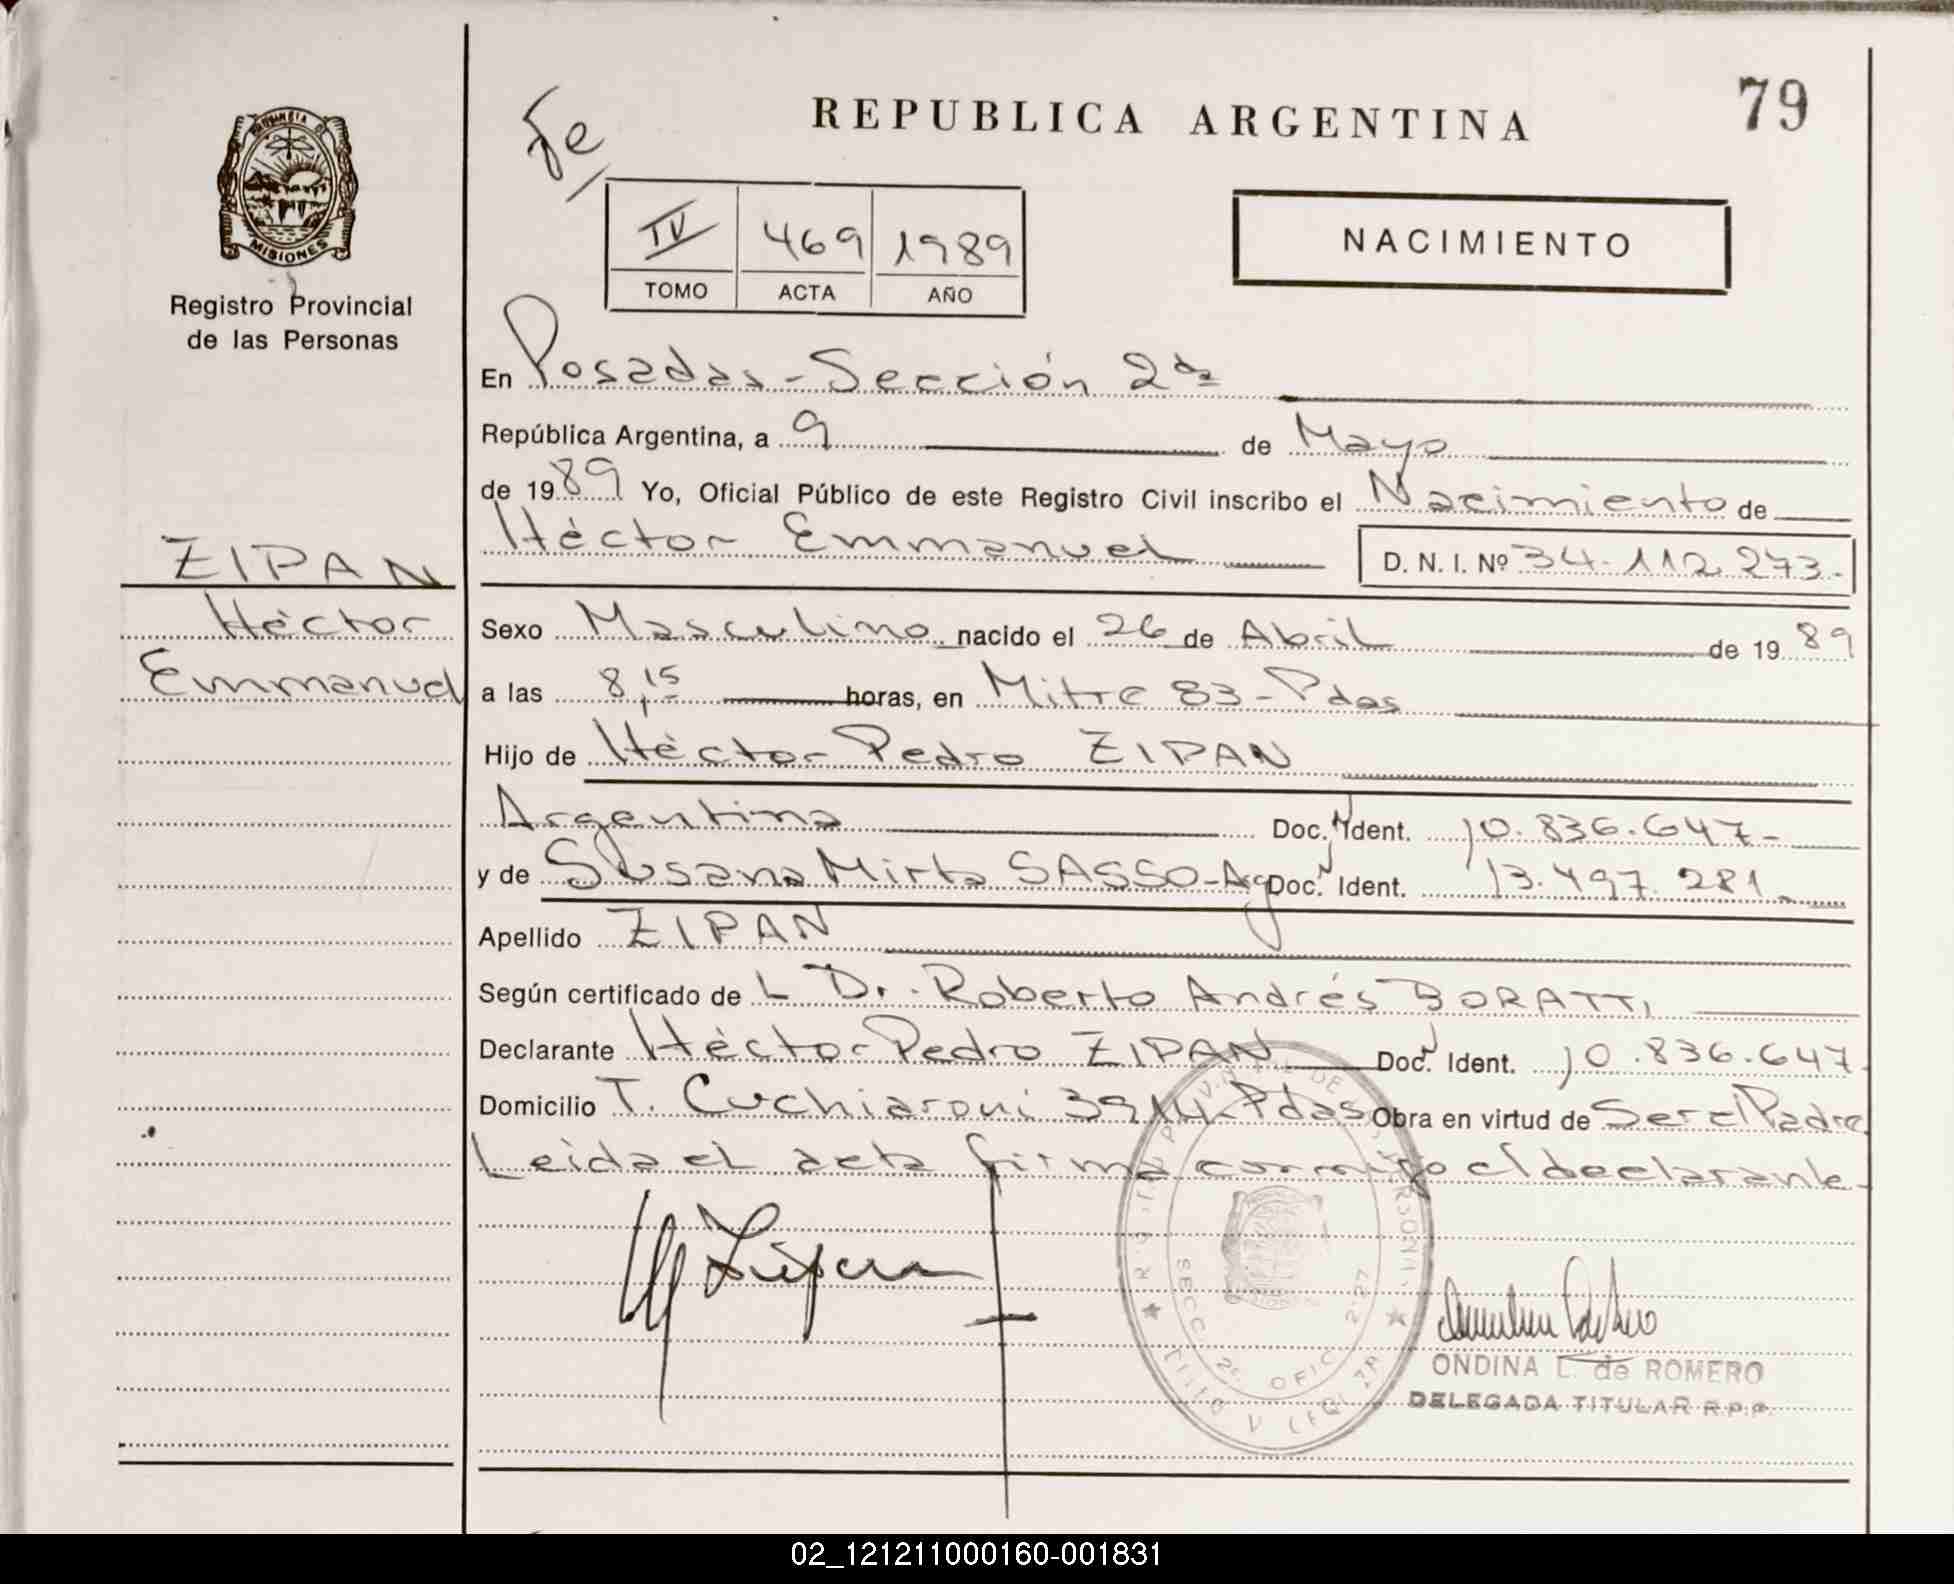 79
REPUBLICA ARGENTINA
Fe
PROVINCIA D MISIONES
IV 469 1989
TOMO ACTA AÑO
NACIMIENTO
Registro Provincial
de las Personas
En Posadas - Sección 2da
República Argentina, a 9 de Mayo
de 1989 Yo, Oficial Público de este Registro Civil inscribo el Nacimiento de
Héctor Emmanuel D. N. I. Nº 34.112.273.-
ZIPAN
Héctor
Emmanuel
Sexo Masculino nacido el 26 de Abril de 1989
a las 8,15 horas, en Mitre 83 - Pdas
Hijo de Héctor Pedro ZIPAN
Argentina Doc. N Ident. 10.836.647-
y de Susana Mirta SASSO - Arg Doc. N Ident. 13.497.281.-
Apellido ZIPAN
Según certificado de L Dr. Roberto Andrés BORATTI
Declarante Héctor Pedro ZIPAN Doc. N Ident. 10.836.647-
Domicilio T. Cuchiaroni 3914 - Pdas Obra en virtud de Ser el Padre
Leida el acta firma conmigo el declarante-
Zipan
SECC 2º OFIC 2127
ONDINA L. de ROMERO
DELEGADA TITULAR R.P.P.
02_121211000160-001831